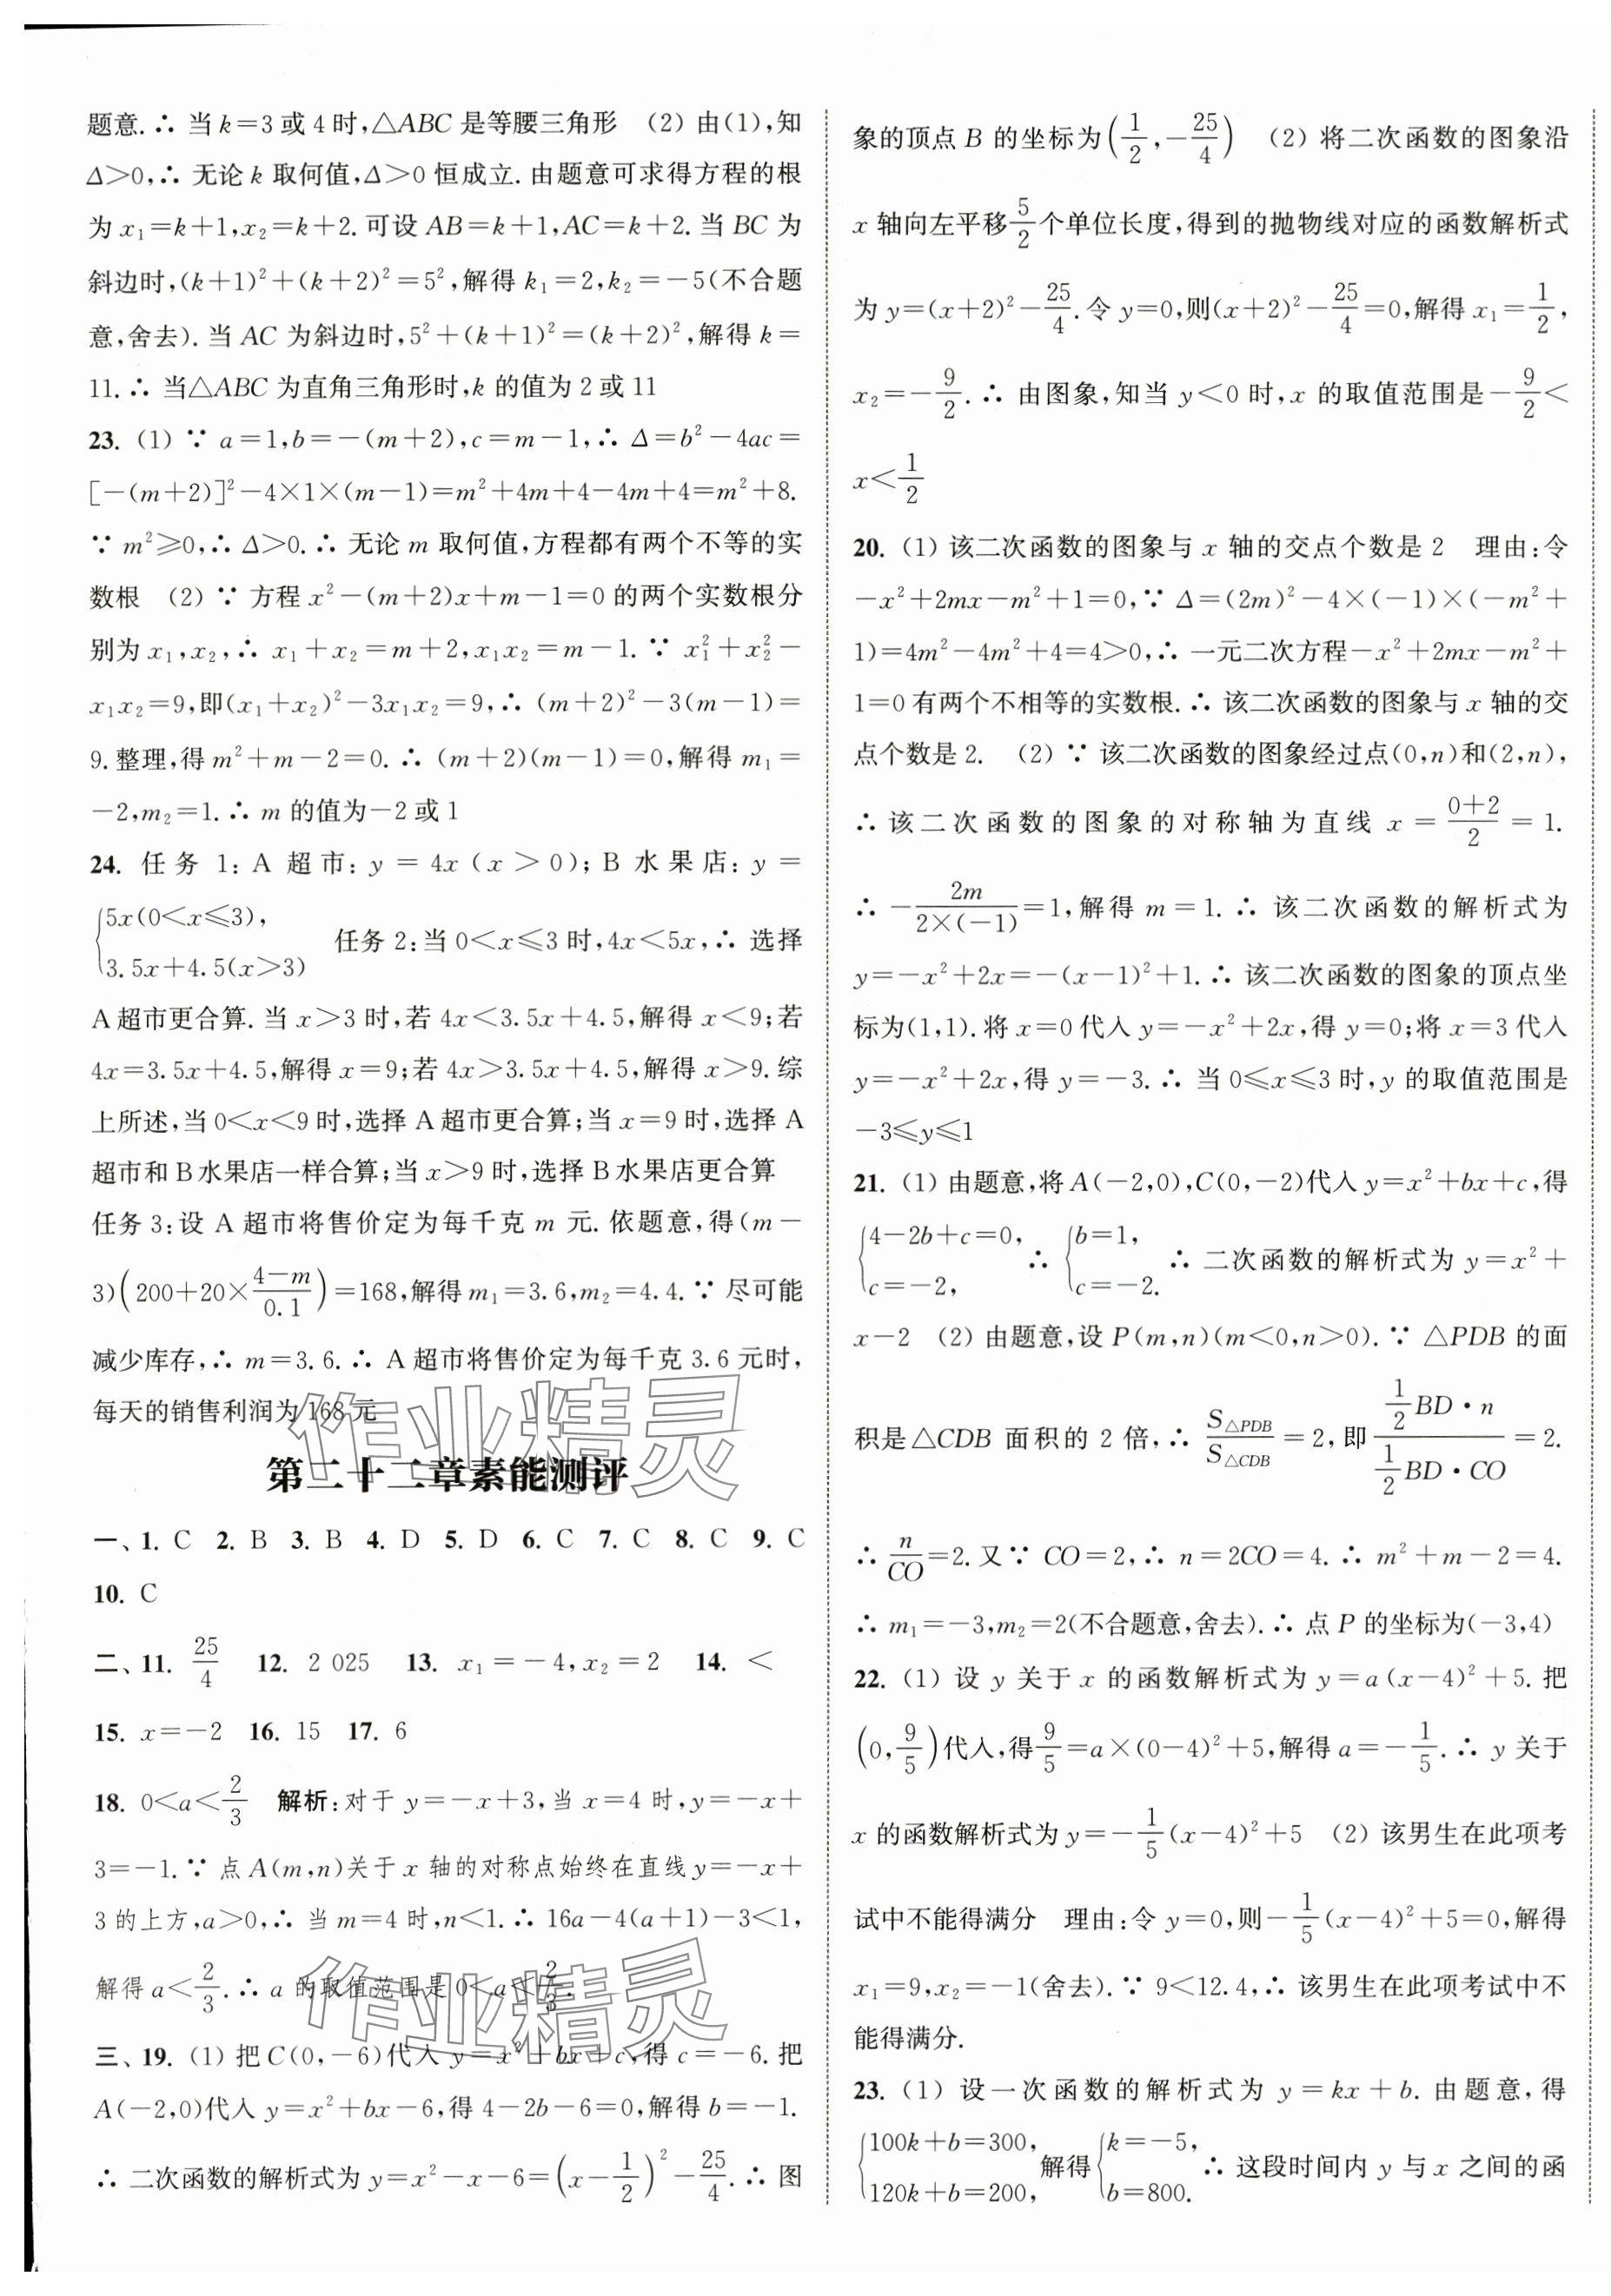 题意.∴ 当k=3或4时,△ABC是等腰三角形 (2) 由(1),知
Δ>0,∴ 无论k取何值,Δ>0恒成立.由题意可求得方程的根
为x₁=k+1,x₂=k+2.可设AB=k+1,AC=k+2.当BC为
斜边时,(k+1)²+(k+2)²=5²,解得k₁=2,k₂=-5(不合题
意,舍去).当AC为斜边时,5²+(k+1)²=(k+2)²,解得k=
11.∴ 当△ABC为直角三角形时,k的值为2或11
23. (1) ∵ a=1,b=-(m+2),c=m-1,∴ Δ=b²-4ac=
[-(m+2)]²-4×1×(m-1)=m²+4m+4-4m+4=m²+8.
∵ m²≥0,∴ Δ>0.∴ 无论m取何值,方程都有两个不等的实
数根 (2) ∵ 方程x²-(m+2)x+m-1=0的两个实数根分
别为x₁,x₂,∴ x₁+x₂=m+2,x₁x₂=m-1.∵ x₁²+x₂²-
x₁x₂=9,即(x₁+x₂)²-3x₁x₂=9,∴ (m+2)²-3(m-1)=
9.整理,得m²+m-2=0.∴ (m+2)(m-1)=0,解得m₁=
-2,m₂=1.∴ m的值为-2或1
24. 任务1:A超市:y=4x(x>0);B水果店:y=
{5x(0<x≤3),
3.5x+4.5(x>3) 任务2:当0<x≤3时,4x<5x,∴ 选择
A超市更合算.当x>3时,若4x<3.5x+4.5,解得x<9;若
4x=3.5x+4.5,解得x=9;若4x>3.5x+4.5,解得x>9.综
上所述,当0<x<9时,选择A超市更合算;当x=9时,选择A
超市和B水果店一样合算;当x>9时,选择B水果店更合算
任务3:设A超市将售价定为每千克m元.依题意,得(m-
3)(200+20×(4-m)/0.1)=168,解得m₁=3.6,m₂=4.4.∵ 尽可能
减少库存,∴ m=3.6.∴ A超市将售价定为每千克3.6元时,
每天的销售利润为168元
第二十二章素能测评
一、1. C 2. B 3. B 4. D 5. D 6. C 7. C 8. C 9. C
10. C
二、11. 25/4 12. 2 025 13. x₁=-4,x₂=2 14. <
15. x=-2 16. 15 17. 6
18. 0<a<2/3 解析:对于y=-x+3,当x=4时,y=-x+
3=-1.∵ 点A(m,n)关于x轴的对称点始终在直线y=-x+
3的上方,a>0,∴ 当m=4时,n<1.∴ 16a-4(a+1)-3<1,
解得a<2/3.∴ a的取值范围是0<a<2/3.
三、19. (1) 把C(0,-6)代入y=x²+bx+c,得c=-6.把
A(-2,0)代入y=x²+bx-6,得4-2b-6=0,解得b=-1.
∴ 二次函数的解析式为y=x²-x-6=(x-1/2)²-25/4.∴ 图
象的顶点B的坐标为(1/2,-25/4) (2) 将二次函数的图象沿
x轴向左平移5/2个单位长度,得到的抛物线对应的函数解析式
为y=(x+2)²-25/4.令y=0,则(x+2)²-25/4=0,解得x₁=1/2,
x₂=-9/2.∴ 由图象,知当y<0时,x的取值范围是-9/2<
x<1/2
20. (1) 该二次函数的图象与x轴的交点个数是2 理由:令
-x²+2mx-m²+1=0,∵ Δ=(2m)²-4×(-1)×(-m²+
1)=4m²-4m²+4=4>0,∴ 一元二次方程-x²+2mx-m²+
1=0有两个不相等的实数根.∴ 该二次函数的图象与x轴的交
点个数是2. (2) ∵ 该二次函数的图象经过点(0,n)和(2,n),
∴ 该二次函数的图象的对称轴为直线x=(0+2)/2=1.
∴ -2m/(2×(-1))=1,解得m=1.∴ 该二次函数的解析式为
y=-x²+2x=-(x-1)²+1.∴ 该二次函数的图象的顶点坐
标为(1,1).将x=0代入y=-x²+2x,得y=0;将x=3代入
y=-x²+2x,得y=-3.∴ 当0≤x≤3时,y的取值范围是
-3≤y≤1
21. (1) 由题意,将A(-2,0),C(0,-2)代入y=x²+bx+c,得
{4-2b+c=0, c=-2, ∴ {b=1, c=-2. ∴ 二次函数的解析式为y=x²+
x-2 (2) 由题意,设P(m,n)(m<0,n>0).∵ △PDB的面
积是△CDB面积的2倍,∴ S△PDB/S△CDB=2,即(1/2BD·n)/(1/2BD·CO)=2.
∴ n/CO=2.又∵ CO=2,∴ n=2CO=4.∴ m²+m-2=4.
∴ m₁=-3,m₂=2(不合题意,舍去).∴ 点P的坐标为(-3,4)
22. (1) 设y关于x的函数解析式为y=a(x-4)²+5.把
(0,9/5)代入,得9/5=a×(0-4)²+5,解得a=-1/5.∴ y关于
x的函数解析式为y=-1/5(x-4)²+5 (2) 该男生在此项考
试中不能得满分 理由:令y=0,则-1/5(x-4)²+5=0,解得
x₁=9,x₂=-1(舍去).∵ 9<12.4,∴ 该男生在此项考试中不
能得满分.
23. (1) 设一次函数的解析式为y=kx+b.由题意,得
{100k+b=300, 120k+b=200, 解得{k=-5, b=800. ∴ 这段时间内y与x之间的函
作业精灵
作业精灵